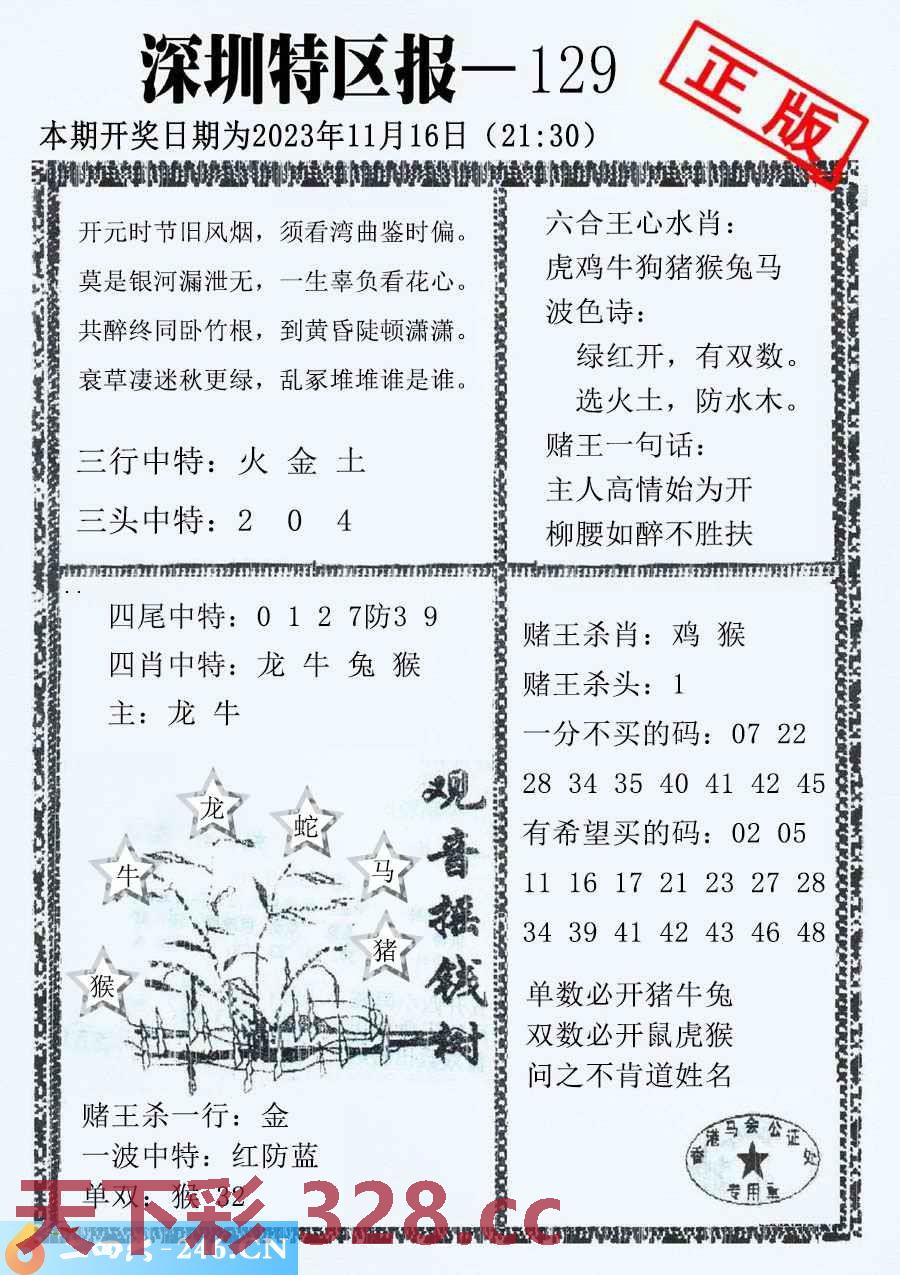 深圳特区报—129
正版
本期开奖日期为2023年11月16日（21:30）
开元时节旧风烟，须看湾曲鉴时偏。
莫是银河漏泄无，一生辜负看花心。
共醉终同卧竹根，到黄昏陡顿潇潇。
衰草凄迷秋更绿，乱冢堆堆谁是谁。
三行中特：火 金 土
三头中特：2 0 4
六合王心水肖：
虎鸡牛狗猪猴兔马
波色诗：
绿红开，有双数。
选火土，防水木。
赌王一句话：
主人高情始为开
柳腰如醉不胜扶
四尾中特：0 1 2 7防3 9
四肖中特：龙 牛 兔 猴
主：龙 牛
龙
蛇
牛
马
猪
猴
观音摇钱树
赌王杀一行：金
一波中特：红防蓝
单双：猴 32
赌王杀肖：鸡 猴
赌王杀头：1
一分不买的码：07 22
28 34 35 40 41 42 45
有希望买的码：02 05
11 16 17 21 23 27 28
34 39 41 42 43 46 48
单数必开猪牛兔
双数必开鼠虎猴
问之不肯道姓名
香港马会公证处
专用章
天下彩 328.cc
-246.CN